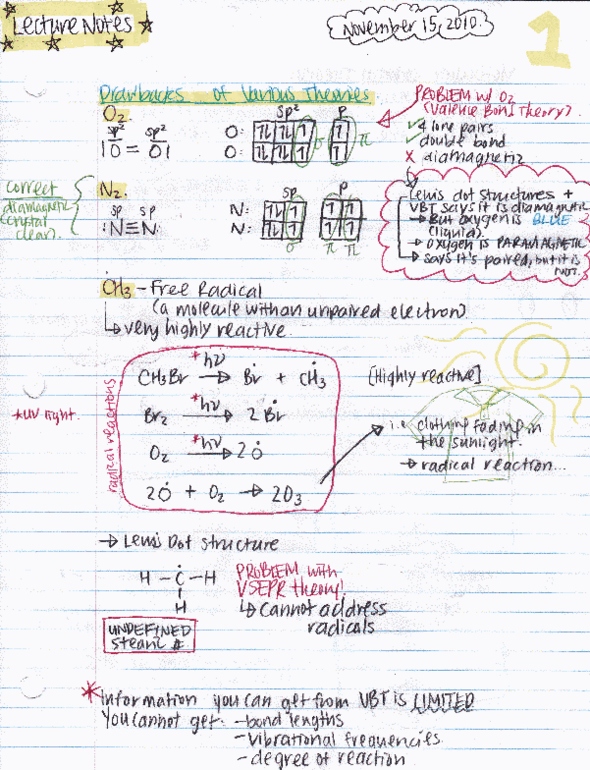 Lecture Notes
November 15, 2010.
1
Drawbacks of Various Theories
O2
sp² sp²
|O = O|
O:
O:
sp² p
σ π
PROBLEM w/ O2
(Valence Bond Theory)
✓ 4 lone pairs
✓ double bond
✗ diamagnetic
Lewis dot structures +
VBT says it is diamagnetic
→ But oxygen is BLUE
(liquid).
→ oxygen is PARAMAGNETIC
→ says it's paired, but it is
NOT.
correct
diamagnetic
(crystal
clear).
N2.
sp sp
:N≡N:
N:
N:
sp p
σ π π
CH3 - Free Radical
(a molecule with an unpaired electron)
↳ very highly reactive
radical reactions
*UV light.
CH3Br *hν→ Ḃr + ĊH3
Br2 *hν→ 2 Ḃr
O2 *hν→ 2Ȯ
2Ȯ + O2 → 2O3
[Highly reactive]
i.e. clothing fading in
the sunlight.
→ radical reaction...
→ Lewis Dot Structure
H - Ċ - H
H
UNDEFINED
Steric #
PROBLEM with
VSEPR theory!
↳ Cannot address
radicals
* Information you can get from VBT is LIMITED
You cannot get: - bond lengths
- vibrational frequencies
- degree of reaction